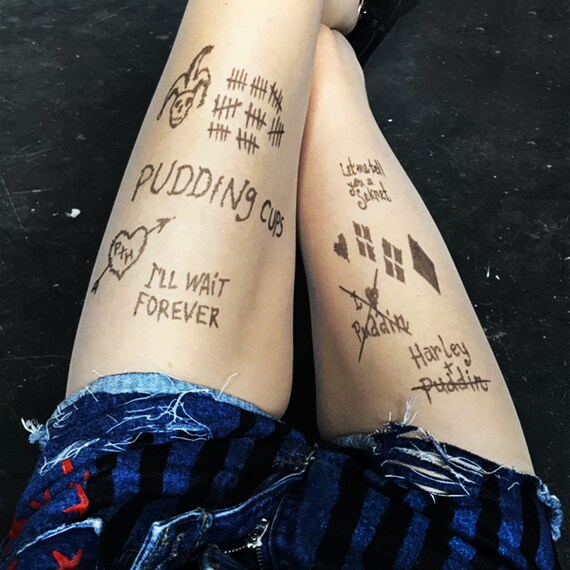 PUDDING CUPS
PXH
I'LL WAIT
FOREVER
Let me tell
you a
Puddin
Harley
+
Puddin